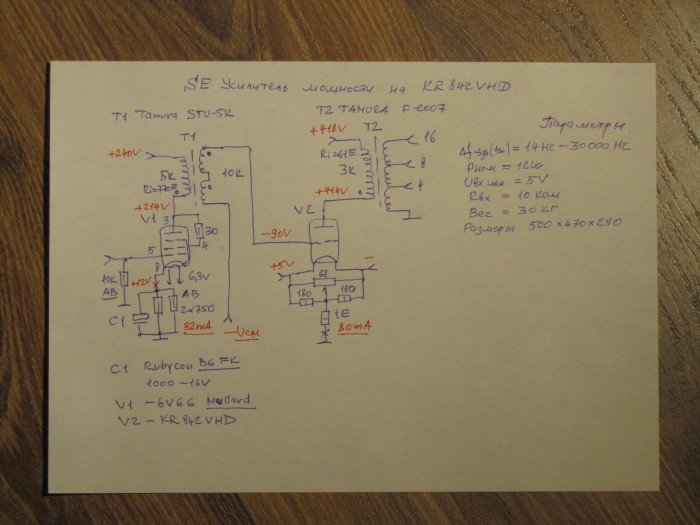 SE Усилитель мощности на KR 842 VHD
T1 Tamura STU-5K
T2 TAMURA F-2007
Параметры
+240V
T1
5K
Ri=770E
10K
+214V
V1
3
30
4
5
8
6,3V
10K
AB
+12V
AB
2x750
C1
32mA
-Uсм
+418V
T2
Ri=61E
3K
16
8
4
+414V
V2
-90V
+5V
-
62
180
180
1E
80mA
Δf-3дб(1w) = 14Hz - 30000Hz
Pном = 12W
Uвх.ном = 5V
Rвх = 10 Ком
Вес = 30 кг
Размеры 500x470x290
C1 Rubycon B6 FK
1000 - 16V
V1 - 6V6G Mullard
V2 - KR842VHD